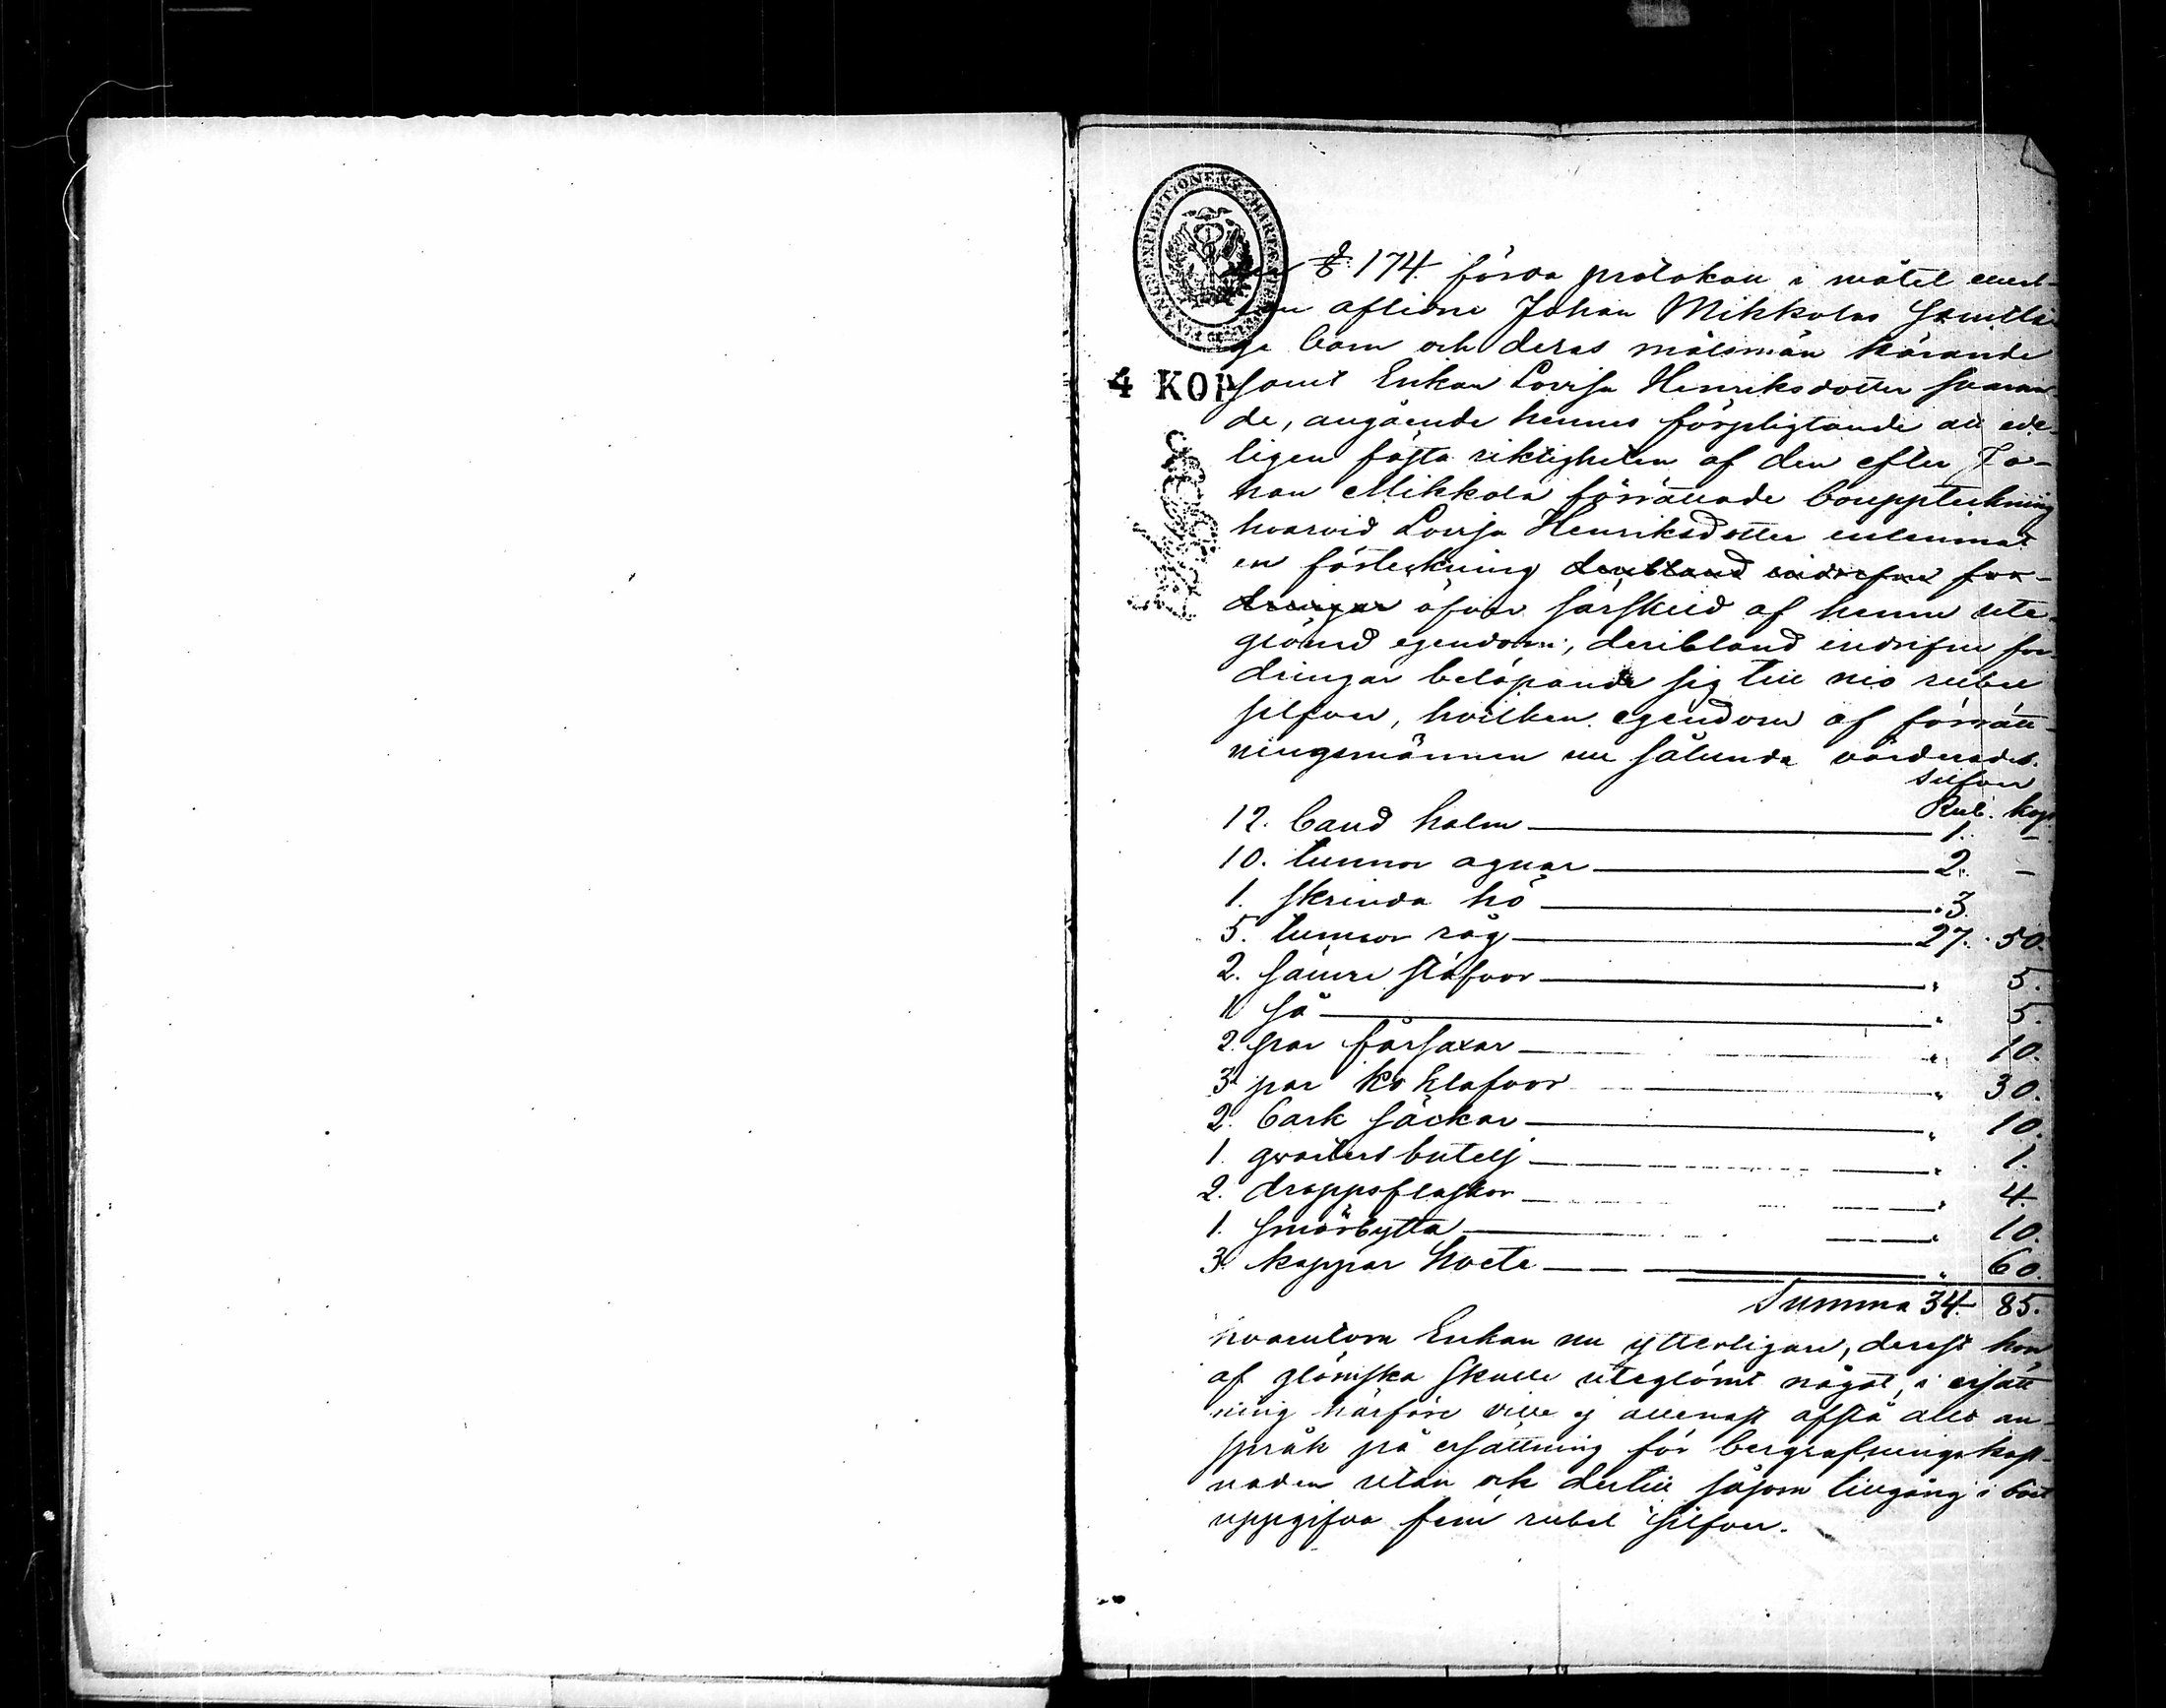 § 174 förda protokoll i målet emel-
lan aflidne Johan Mikkolas samtli-
ga barn och deras målsmän kärande
4 KOP samt Enkan Lovisa Henriksdotter svaran-
de, angående hennes förpligtande att ede-
ligen fästa riktigheten af den efter Jo-
han Mikkola förrättade bouppteckning
hvarvid Lovisa Henriksdotter inlemnat
en förteckning deribland indrefne for-
dringar öfver särskild af henne ute-
glömd egendom, deribland indrifne for-
dringar belöpande sig till nio rubel
silfver, hvilken egendom af förrätt-
ningsmännen nu sålunda värderades.
Silfver
Rub. kop.
12. band halm 1. –
10. tunnor agnar 2. –
1. skrinda hö 3.
5. tunnor råg 27. 50.
2. sämre stäfvor " 5.
1 så " 5.
2. par fårsaxar " 10.
3 par ko klafvor " 30.
2. bark säckar " 10.
1. qvarters butelj " 1.
2. droppsflaskor " 4.
1. smörbytta " 10.
3. kappar hvete " 60.
Summa 34. 85.
hvarutom Enkan nu ytterligare, derest hon
af glömska skulle uteglömt något, i ersätt
ning härföre ville ej allenast afstå allt an-
språk på ersättning för begrafningskost-
naden utan ock dertill såsom tillgång i boet
uppgifva fem rubel silfver.